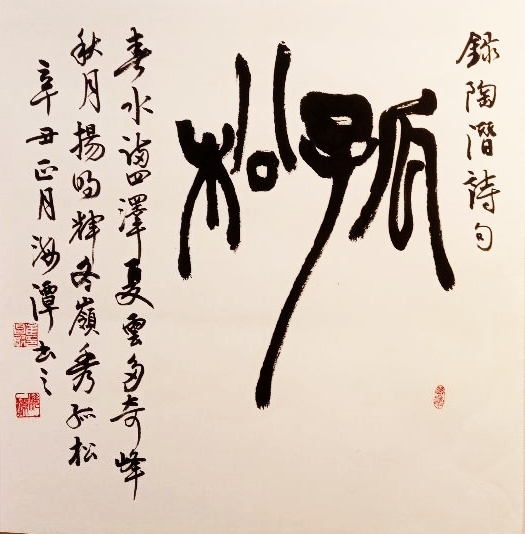 錄陶潛詩句
孤松
春水滿四澤夏雲多奇峰
秋月揚明輝冬嶺秀孤松
辛丑正月海潭书之